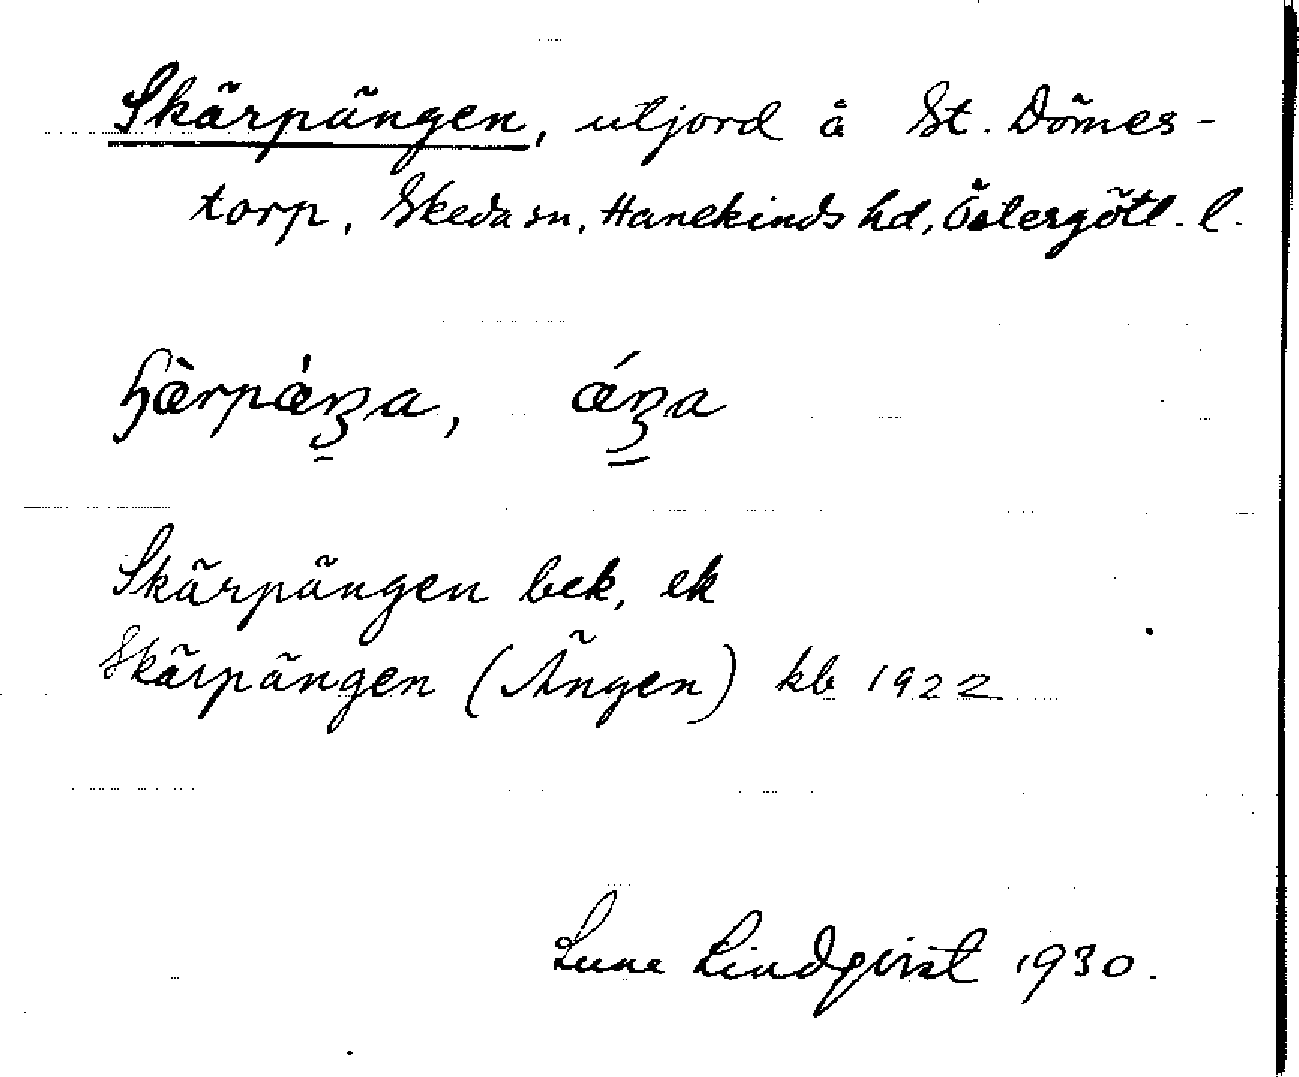 Skärpängen, utjord å St. Dömes-
torp, Skeda sn, Hanekinds hd, Östergötl. l.
ɧæ̀rpǽŋa, ǽŋa
Skärpängen bek, ek
Skärpängen (Ängen) kb 1922
Sune Lindqvist 1930.